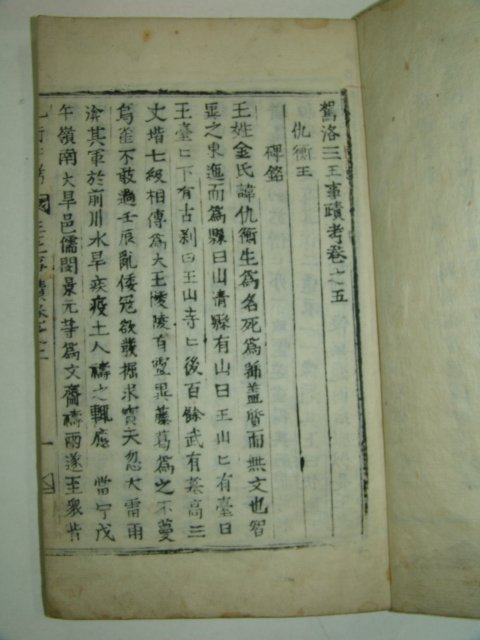 駕洛三王事蹟考卷之五
仇衡王
碑銘
王姓金氏諱仇衡生爲名死爲諱盖質而無文也智
異之東進而爲縣曰山淸縣有山曰王山匕有臺曰
王臺匕下有古刹曰王山寺匕後百餘武有墓高三
丈堦七級相傳爲大王陵陵有靈異藤葛爲之不蔓
烏雀不敢過壬辰亂倭冦欲發掘求寶天忽大雷雨
渰其軍於前川水旱疾疫土人禱之輒應 當宁戊
午嶺南大旱邑儒閔景元等爲文齋禱雨遂至衆皆